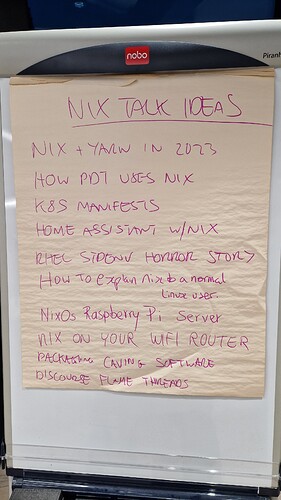 nobo
Piranh
NIX TALK IDEAS
NIX + YARN IN 2023
HOW PDT USES NIX
K8S MANIFESTS
HOME ASSISTANT W/NIX
RHEL STDENV HORROR STORY
How to explain Nix to a normal
Linux user.
NixOs Raspberry Pi Server
NIX ON YOUR WIFI ROUTER
PACKAGING CAVING SOFTWARE
DISCOURSE FLAME THREADS